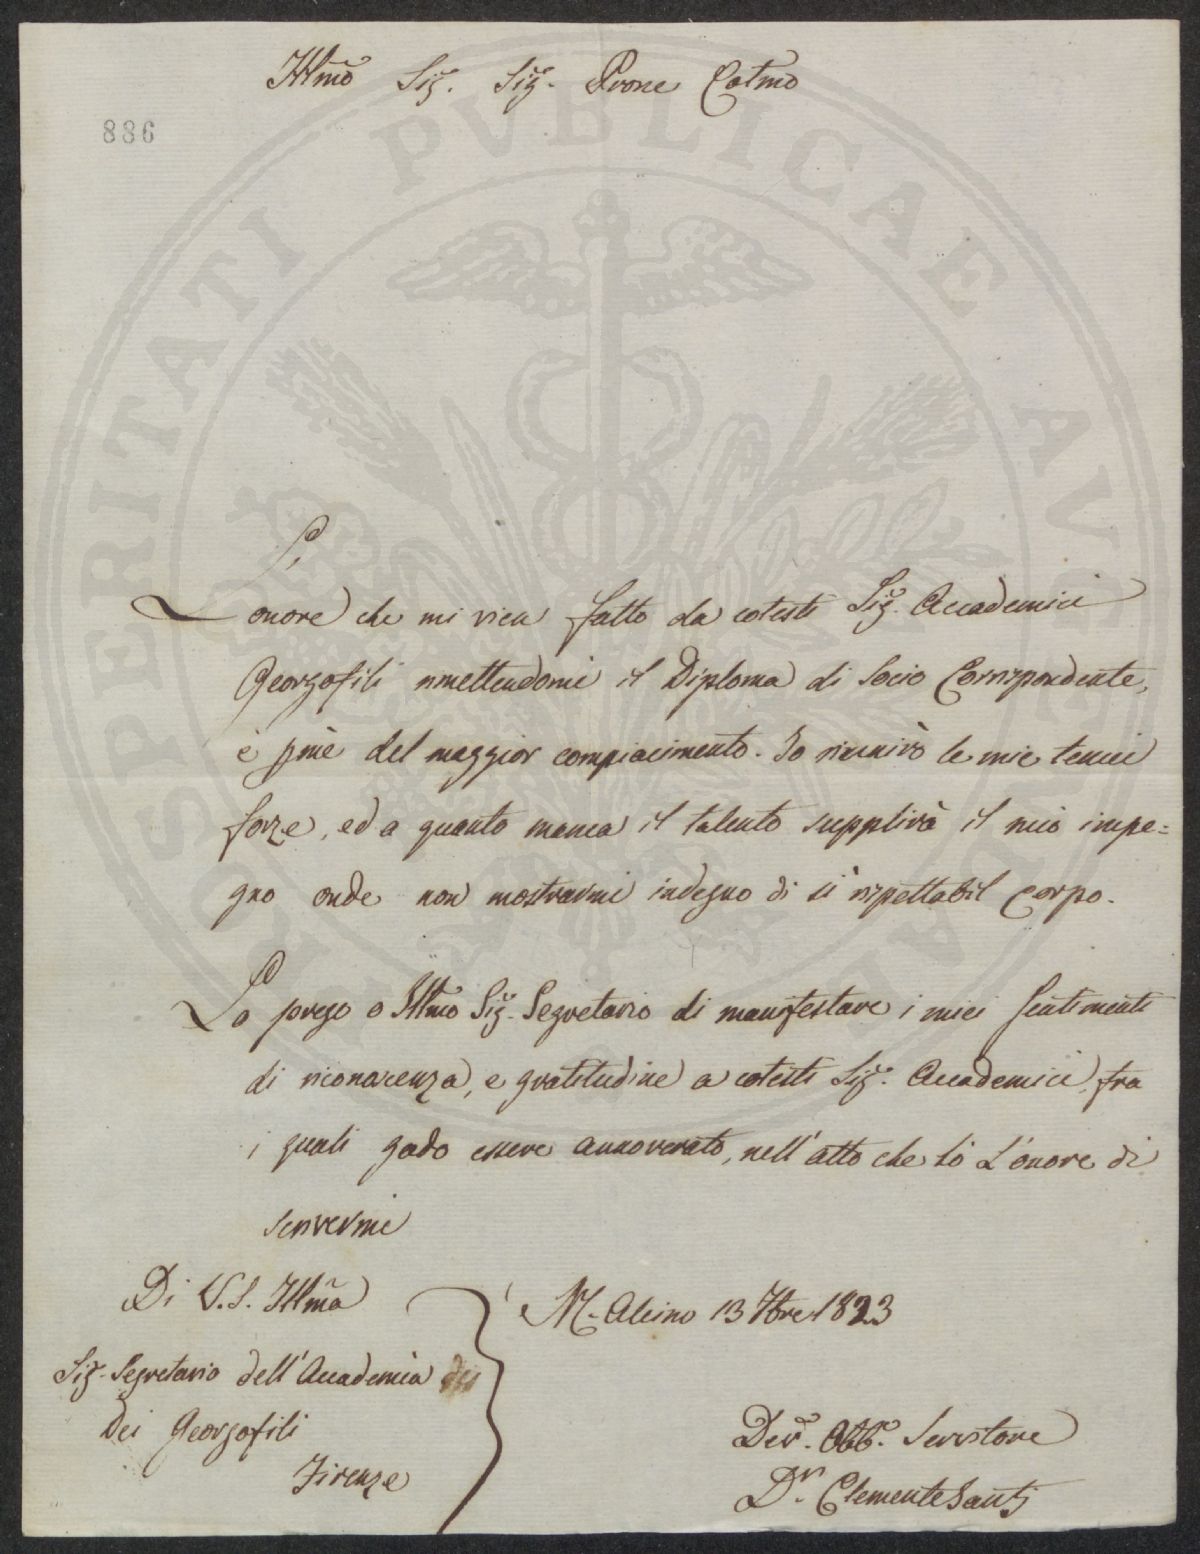 Illmo Sig. Sig. Prone Colmo
886
L'onore che mi vien fatto da cotesti Sig. Accademici
Georgofili rimettendomi il Diploma di Socio Corrispondente,
è p me del maggior compiacimento. Io riunirò le mie tenui
forze, ed a quanto manca il talento supplirà il mio impe=
gno onde non mostrarmi indegno di sì rispettabil Corpo.
La prego o Illmo Sig. Segretario di manifestare i miei sentimenti
di riconoscenza, e gratitudine a cotesti Sig. Accademici, fra
i quali godo essere annoverato, nell'atto che ho L'onore di
scrivermi
Di V.S. Illma
M. Alcino 13 7bre 1823
Sig. Segretario dell'Accademia dei
Dei Georgofili
Firenze
Dev. Obb. Servitore
Dr. Clemente Santi
PROSPERITATI PVBLICAE AVGENDAE